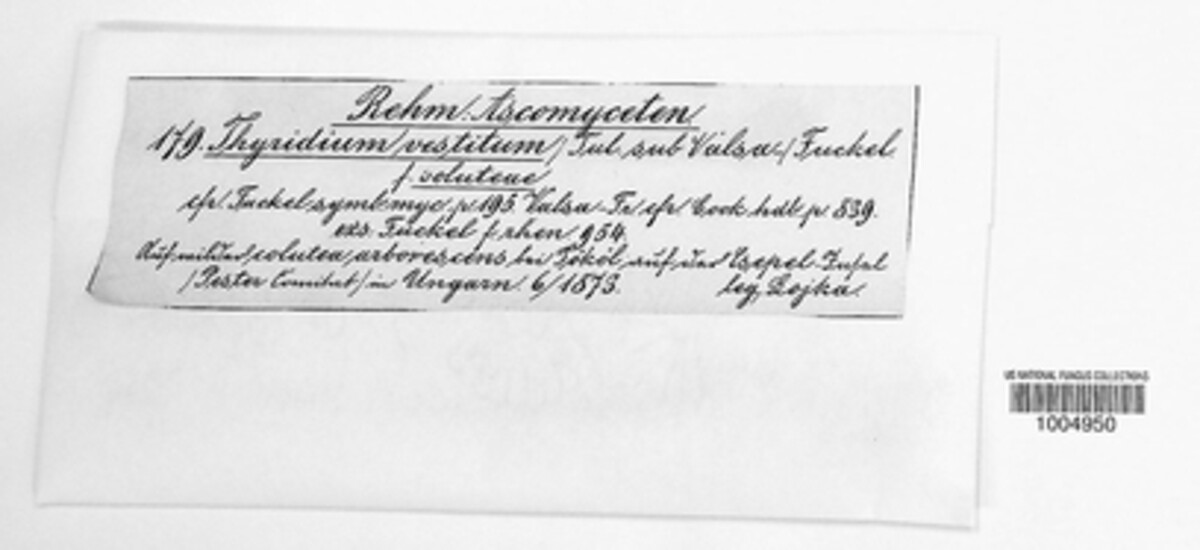 Rehm: Ascomyceten.
179. Thyridium vestitum / Tul. sub Valsa / Fuckel.
f. coluteae
cfr. Fuckel symb. myc. p. 195. Valsa Fr. cfr. Cook. hdb. p. 839.
exs. Fuckel f. rhen. 954.
Auf wilder colutea arborescens bei Tököl auf der Csepel-Insel
/ Pester Comitat / in Ungarn. 6/1873. leg. Lojka.
US NATIONAL FUNGUS COLLECTIONS
1004950